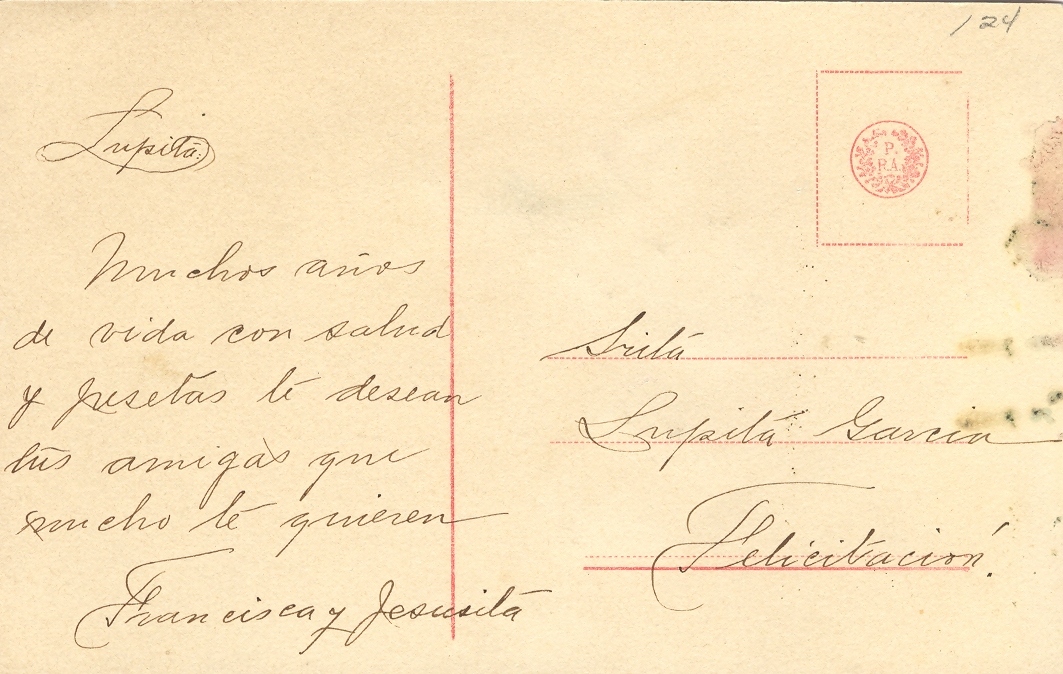 124
Lupita:
Muchos años
de vida con salud
y pesetas te desean
tus amigas que
mucho te quieren
Francisca y Jesusita
P.
R.A.
Srita
Lupita Garcia
Felicitación.